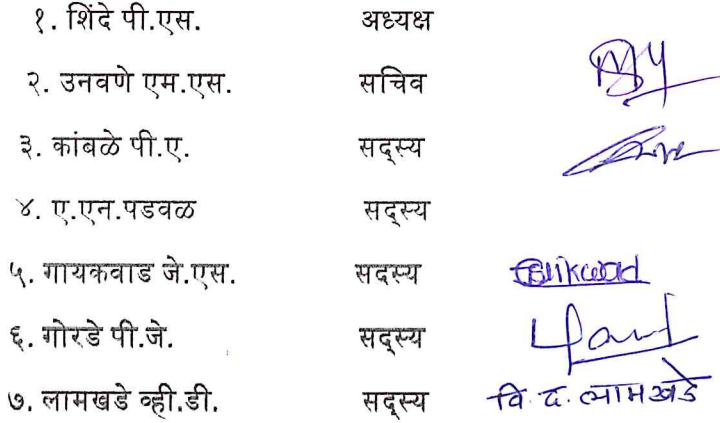 १. शिंदे पी.एस. अध्यक्ष
२. उनवणे एम.एस. सचिव
३. कांबळे पी.ए. सदस्य
४. ए.एन.पडवळ सदस्य
५. गायकवाड जे.एस. सदस्य
६. गोरडे पी.जे. सदस्य
७. लामखडे व्ही.डी. सदस्य वि. द. लामखडे